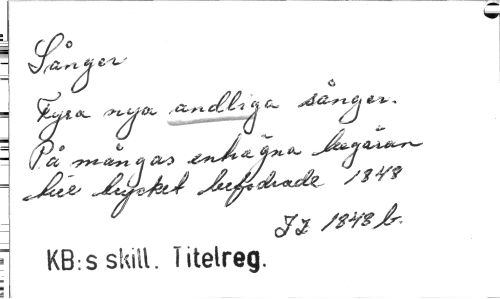 Sånger
Fyra nya andliga sånger.
På mångas enhägna begäran
till trycket befodrade 1848
JZ 1848 b.
KB:s skill. Titelreg.